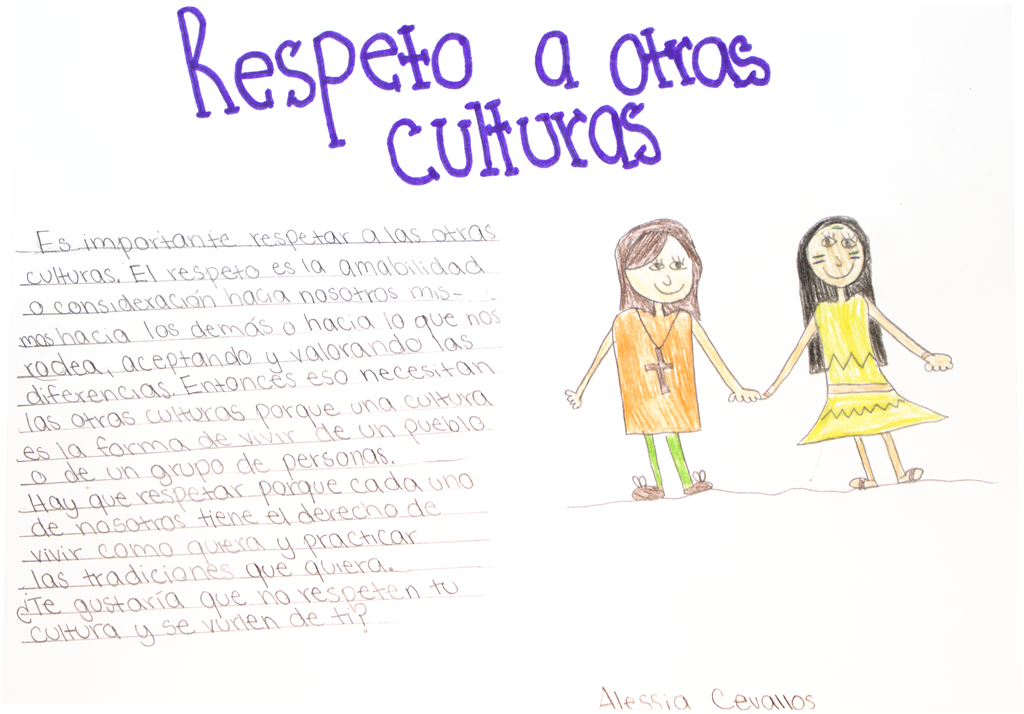 Respeto a otras
culturas
Es importante respetar a las otras
culturas. El respeto es la amabilidad
o consideración hacia nosotros mis-
mos hacia los demás o hacia lo que nos
rodea, aceptando y valorando las
diferencias. Entonces eso necesitan
las otras culturas porque una cultura
es la forma de vivir de un pueblo
o de un grupo de personas.
Hay que respetar porque cada uno
de nosotros tiene el derecho de
vivir como quiera y practicar
las tradiciones que quiera.
¿Te gustaría que no respeten tu
cultura y se vurlen de ti?
Alessia Cevallos